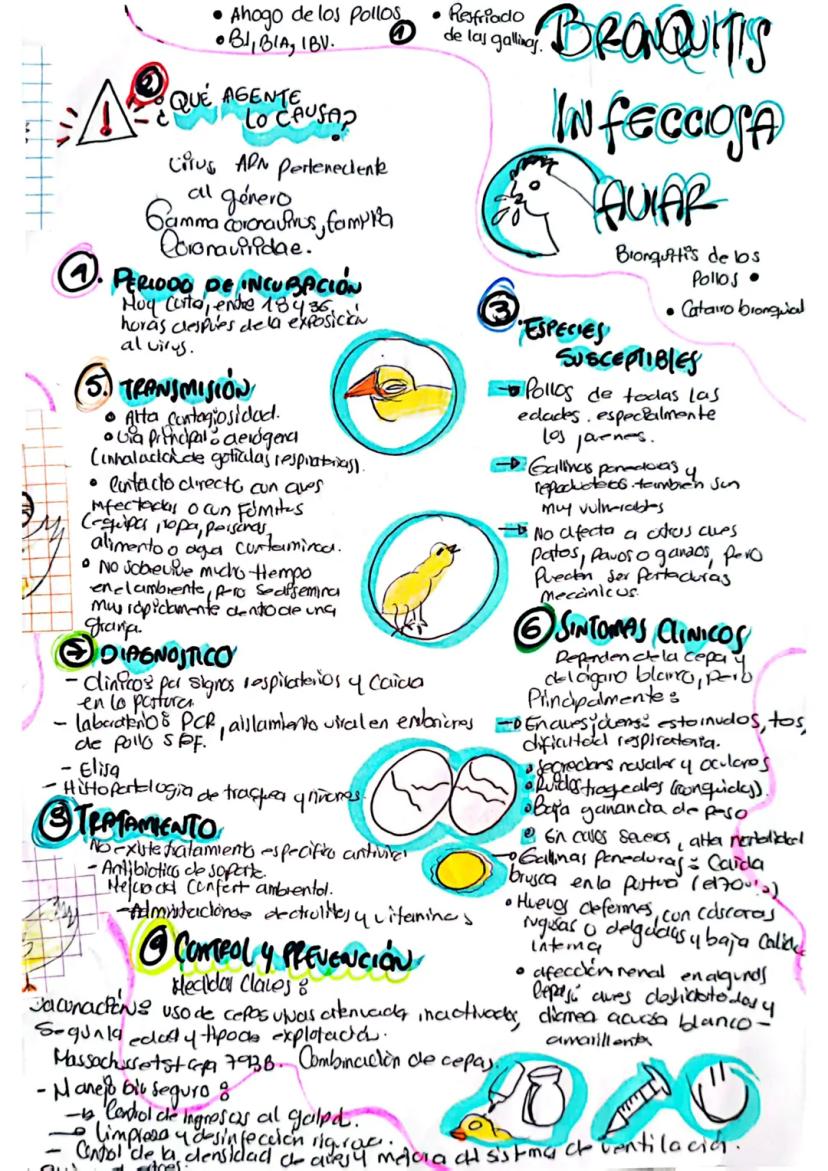 BRONQUITIS
INFECCIOSA
AVIAR
• Ahogo de los pollos
• BI, BIA, IBV.
①
• Resfriado
de las gallinas.
Bronquitis de los
Pollos •
• Catarro bronquial
②
¿QUÉ AGENTE
LO CAUSA?
Virus ARN perteneciente
al género
Gamma coronavirus, familia
Coronaviridae.
④. PERIODO DE INCUBACIÓN
Muy corto, entre 18 y 36
horas después de la exposición
al virus.
③. ESPECIES
SUSCEPTIBLES
→ Pollos de todas las
edades. especialmente
los jovenes.
→ Gallinas ponedoras y
reproductoras también son
muy vulnerables
→ No afecta a otras aves
patos, pavos o gansos, pero
Pueden ser Portadoras
mecánicos.
5. TRANSMISIÓN
• Alta contagiosidad.
• Via Principal: aerógena
(inhalación de goticulas respiratorias).
• Contacto directo con aves
infectadas o con Fómites
(equipos, ropa, personas,
alimento o agua contaminada.
• No sobrevive mucho tiempo
en el ambiente, pero se disemina
muy rápidamente dentro de una
granja.
⑥ SINTOMAS CLINICOS
Dependen de la cepa y
del órgano blanco, pero
Principalmente:
→ En aves jóvenes: estornudos, tos,
dificultad respiratoria.
• Secreciones nasales y oculares
• Ruidos traqueales (ronquidos).
• Baja ganancia de peso
• En casos severos, alta mortalidad
→ Gallinas Ponedoras: Caida
brusca en la postura
• Huevos deformes, con cáscaras
rugosas o delgadas y baja calidad
interna
• afección renal en algunas
cepas: aves deshidratadas y
diarrea acuosa blanco-
amarillenta
⑦ DIAGNOSTICO
- Clinicos: por signos respiratorios y Caida
en la postura
- laboratorios PCR, aislamiento viral en embriones
de pollo SPF.
- Elisa
- Histopatologia de traquea y riñones
⑧ TRATAMIENTO
No existe tratamiento especifico antiviral
- Antibiotico de soporte.
Mejora del Confort ambiental.
- Administración de electrolitos y vitaminas
⑨ CONTROL Y PREVENCIÓN
Medidas Claves:
Vacunación: uso de cepas vivas atenuada, inactivadas,
Segun la edad y tipo de explotación.
Massachussetst cepa 793B. Combinación de cepas.
- Manejo bioseguro:
→ Control de ingresos al galpón.
→ Limpieza y desinfección rigurosa.
- Control de la densidad de aves y mejora del sistema de ventilación.